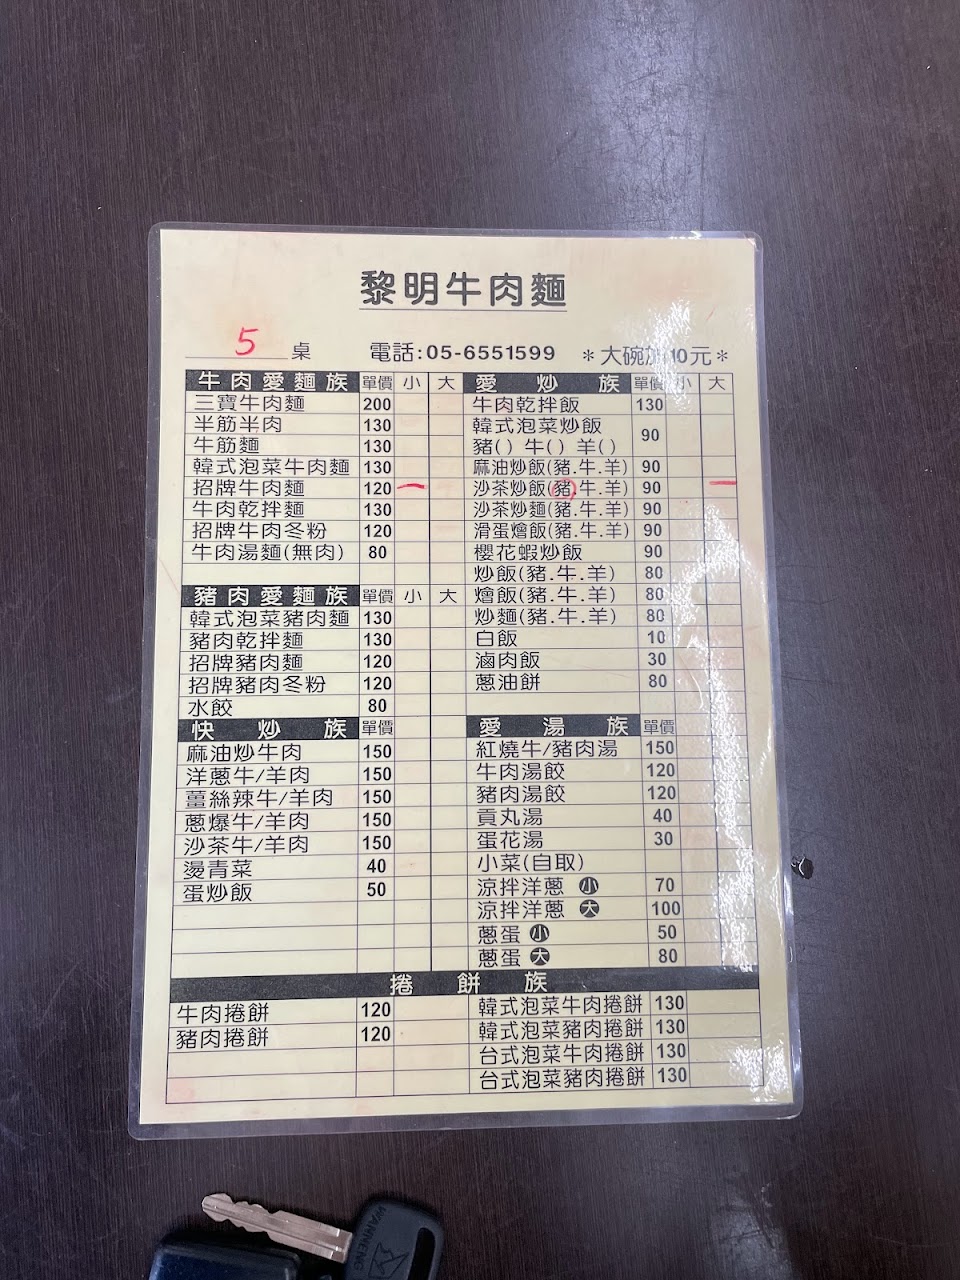 黎明牛肉麵
5 桌 電話:05-6551599 *大碗加10元*
牛肉愛麵族 單價 小 大
三寶牛肉麵 200
半筋半肉 130
牛筋麵 130
韓式泡菜牛肉麵 130
招牌牛肉麵 120 一
牛肉乾拌麵 130
招牌牛肉冬粉 120
牛肉湯麵(無肉) 80
豬肉愛麵族 單價 小 大
韓式泡菜豬肉麵 130
豬肉乾拌麵 130
招牌豬肉麵 120
招牌豬肉冬粉 120
水餃 80
快炒族 單價
麻油炒牛肉 150
洋蔥牛/羊肉 150
薑絲辣牛/羊肉 150
蔥爆牛/羊肉 150
沙茶牛/羊肉 150
燙青菜 40
蛋炒飯 50
愛炒族 單價 小 大
牛肉乾拌飯 130
韓式泡菜炒飯
豬() 牛() 羊() 90
麻油炒飯(豬.牛.羊) 90
沙茶炒飯(豬.牛.羊) 90 一
沙茶炒麵(豬.牛.羊) 90
滑蛋燴飯(豬.牛.羊) 90
櫻花蝦炒飯 90
炒飯(豬.牛.羊) 80
燴飯(豬.牛.羊) 80
炒麵(豬.牛.羊) 80
白飯 10
滷肉飯 30
蔥油餅 80
愛湯族 單價
紅燒牛/豬肉湯 150
牛肉湯餃 120
豬肉湯餃 120
貢丸湯 40
蛋花湯 30
小菜(自取)
涼拌洋蔥 小 70
涼拌洋蔥 大 100
蔥蛋 小 50
蔥蛋 大 80
捲餅族
牛肉捲餅 120
豬肉捲餅 120
韓式泡菜牛肉捲餅 130
韓式泡菜豬肉捲餅 130
台式泡菜牛肉捲餅 130
台式泡菜豬肉捲餅 130
WANNENG